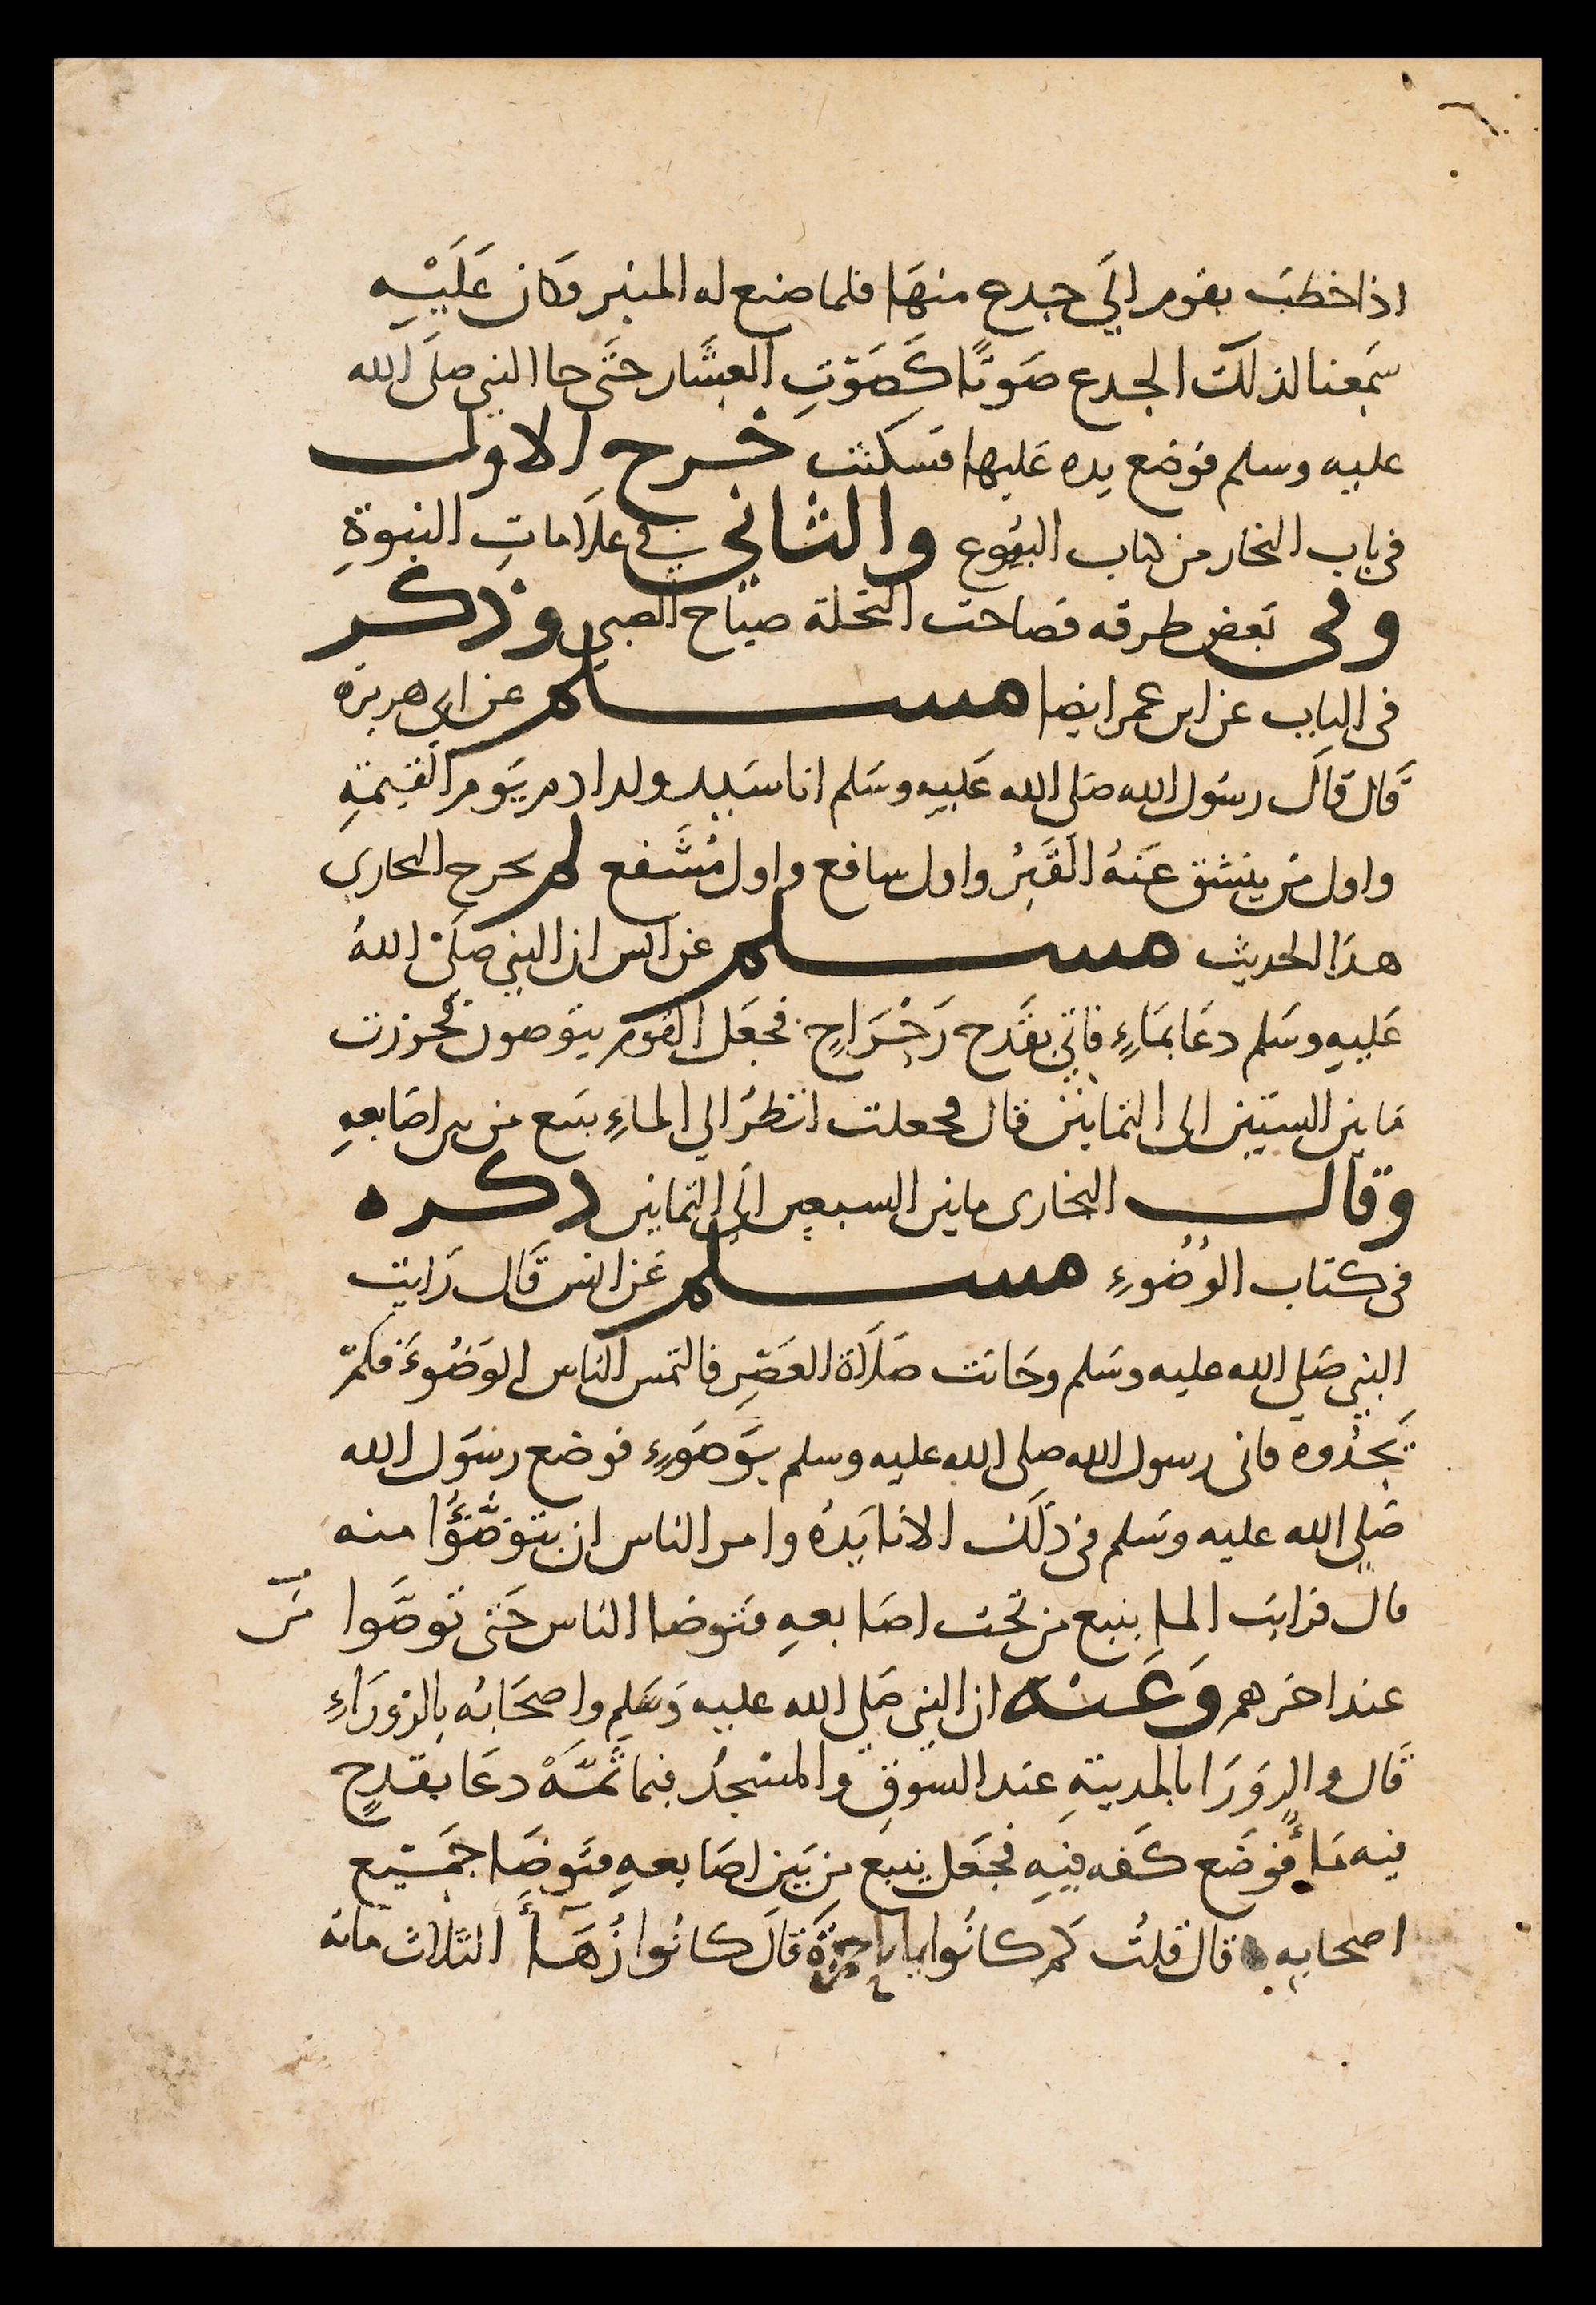 اذا خطب يقوم الَي جدع منهَا فلما صنع له المنبر وَكان عَلَيْهِ
سَمِعنا لذلكَ الجدع صَوتًا كَصَوْتِ العِشَار حتَى جا النبي صلَى الله
عليه وسلم فوَضع يده عَليها فسكنت خرج الاول
في باب النجار من كتاب البيُوع والثاني في علَامَاتِ النبوةِ
وفي بَعض طرقه فصَاحت النخلة صيَاح الصبي وذكر
في الباب عن ابن عمر ايضا مسلم عن ابي هريرَه
قَال قالَ رسُول الله صَلى الله عَليهِ وسَلم انا سَيد ولد ادم يَوم القيمَةِ
واول مَن ينشق عَنهُ القَبرُ واول سافع واول مُشَفع لم يخرج البخاري
هذا الحديث مسلم عن انس ان النبي صلَى اللهُ
عَليهِ وسَلم دعَا بمَاءٍ فاتي بقَدح رَحْرَاحٍ فجعَل القوم يتوضون فحُوزت
مَا بين السَتين الى الثمانين قال فجعلت انظرُ الي الماءِ ينبع من بين اصَابعهِ
وقال البخارى ما بين السبعين الَي الثمانين ذكره
في كتاب الوُضُوءِ مسلم عَن انس قَال رَايت
النبي صَلي الله عليه وسَلم وحَانت صَلَاة العَصْرِ فالتمس الناس الوَضُوءَ فلم
يَجدُوه فاتى رسول الله صلى الله عليه وسلم بوَضوءٍ فوضع رسَول الله
صَلي الله عليه وسَلم في ذلَك الانا يَدهُ وامر الناس ان يتوَضَّؤُا منه
قال فرايت الما ينبع من تحت اصَابعهِ فتوضا الناس حَتى توضَّوا مِن
عند اخرهم وَعَنه ان النبي صَلي الله عليه وَسَلم واصحَابُه بالزورَاءِ
قَال والزوَرَا بالمدينةِ عند السوقِ والمسْجدُ فيما ثَمَّهْ دعَا بقدحٍ
فيه مَاءٌ فوَضَع كَفه فيهِ فجعَل ينبع مِن بَين اصَابعهِ فتوضَا جمَيع
اصحابهِ قال قلتُ كم كانُوا يا با حمزَةَ قالَ كانُوا زُهَاءَ الثلاث مائه